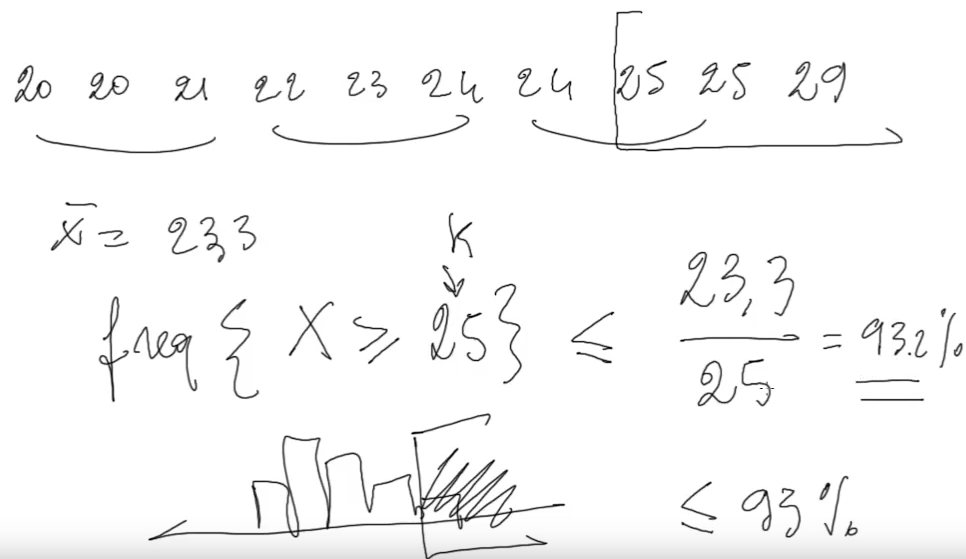 20 20 21 22 23 24 24 25 25 29
x̄ = 23,3
K
freq { X ≥ 25 } ≤ 23,3 / 25 = 93.2%
≤ 93%